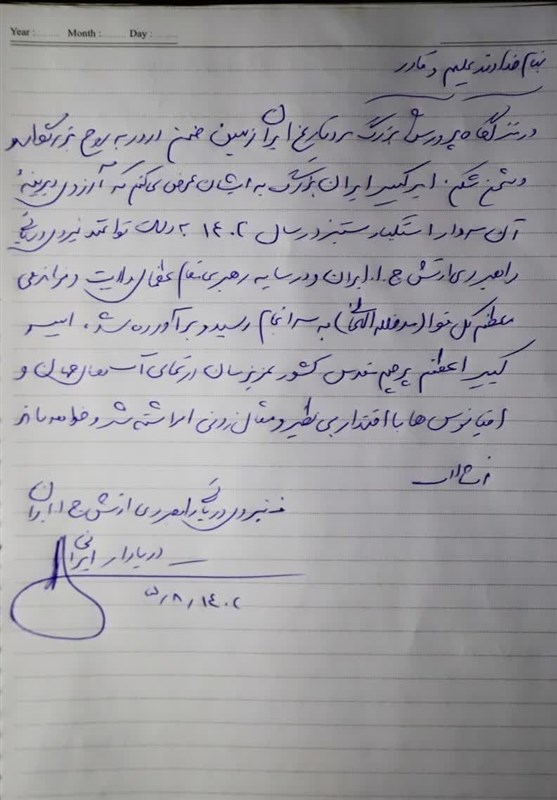 Year : Month : Day :
بنام خداوند علیم و قادر
در نزدگاه پدرش بزرگ تاریخ ایران زمین ضمن درود به روح بزرگوار و
امیرکبیر ایران بزرگ به ایشان عرض میکنم که آرزوی دیرینه
آن سردار استکبار ستیز در سال ۱۴۰۲ به دست توانمند نیروی دریایی
راهبردی ارتش ج.ا.ایران و در سایه رهبری مقام عظمای ولایت و فرماندهی
معظم کل قوا (مدظله العالی) به سرانجام رسید و برآورده شد، امیر
کبیر اعظم پرچم مقدس کشور عزیزمان در تمامی آبهای جهان و
اقیانوس ها با اقتدار بی نظیر و مثال زدنی افراشته شد و خواهد ماند
انشاءالله
ف نیروی دریایی راهبردی ارتش ج.ا.ایران
دریادار ایرانی
۱۴۰۲/۸/۵